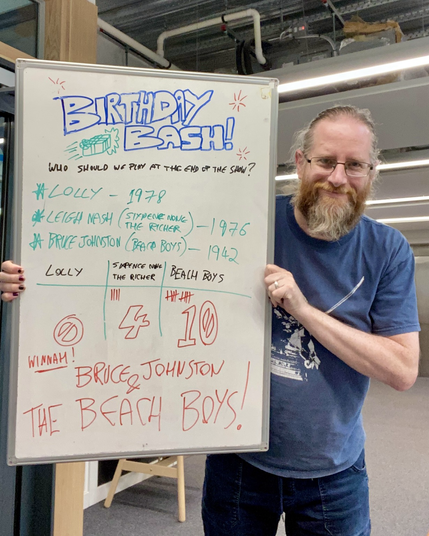 BIRTHDAY
BASH!
WHO SHOULD WE PLAY AT THE END OF THE SHOW?
* LOLLY - 1978
* LEIGH NASH (SIXPENCE NONE THE RICHER) - 1976
* BRUCE JOHNSTON (BEACH BOYS) - 1942
LOLLY
SIXPENCE NONE THE RICHER
BEACH BOYS
0
4
10
WINNAH!
BRUCE JOHNSTON
&
THE BEACH BOYS!